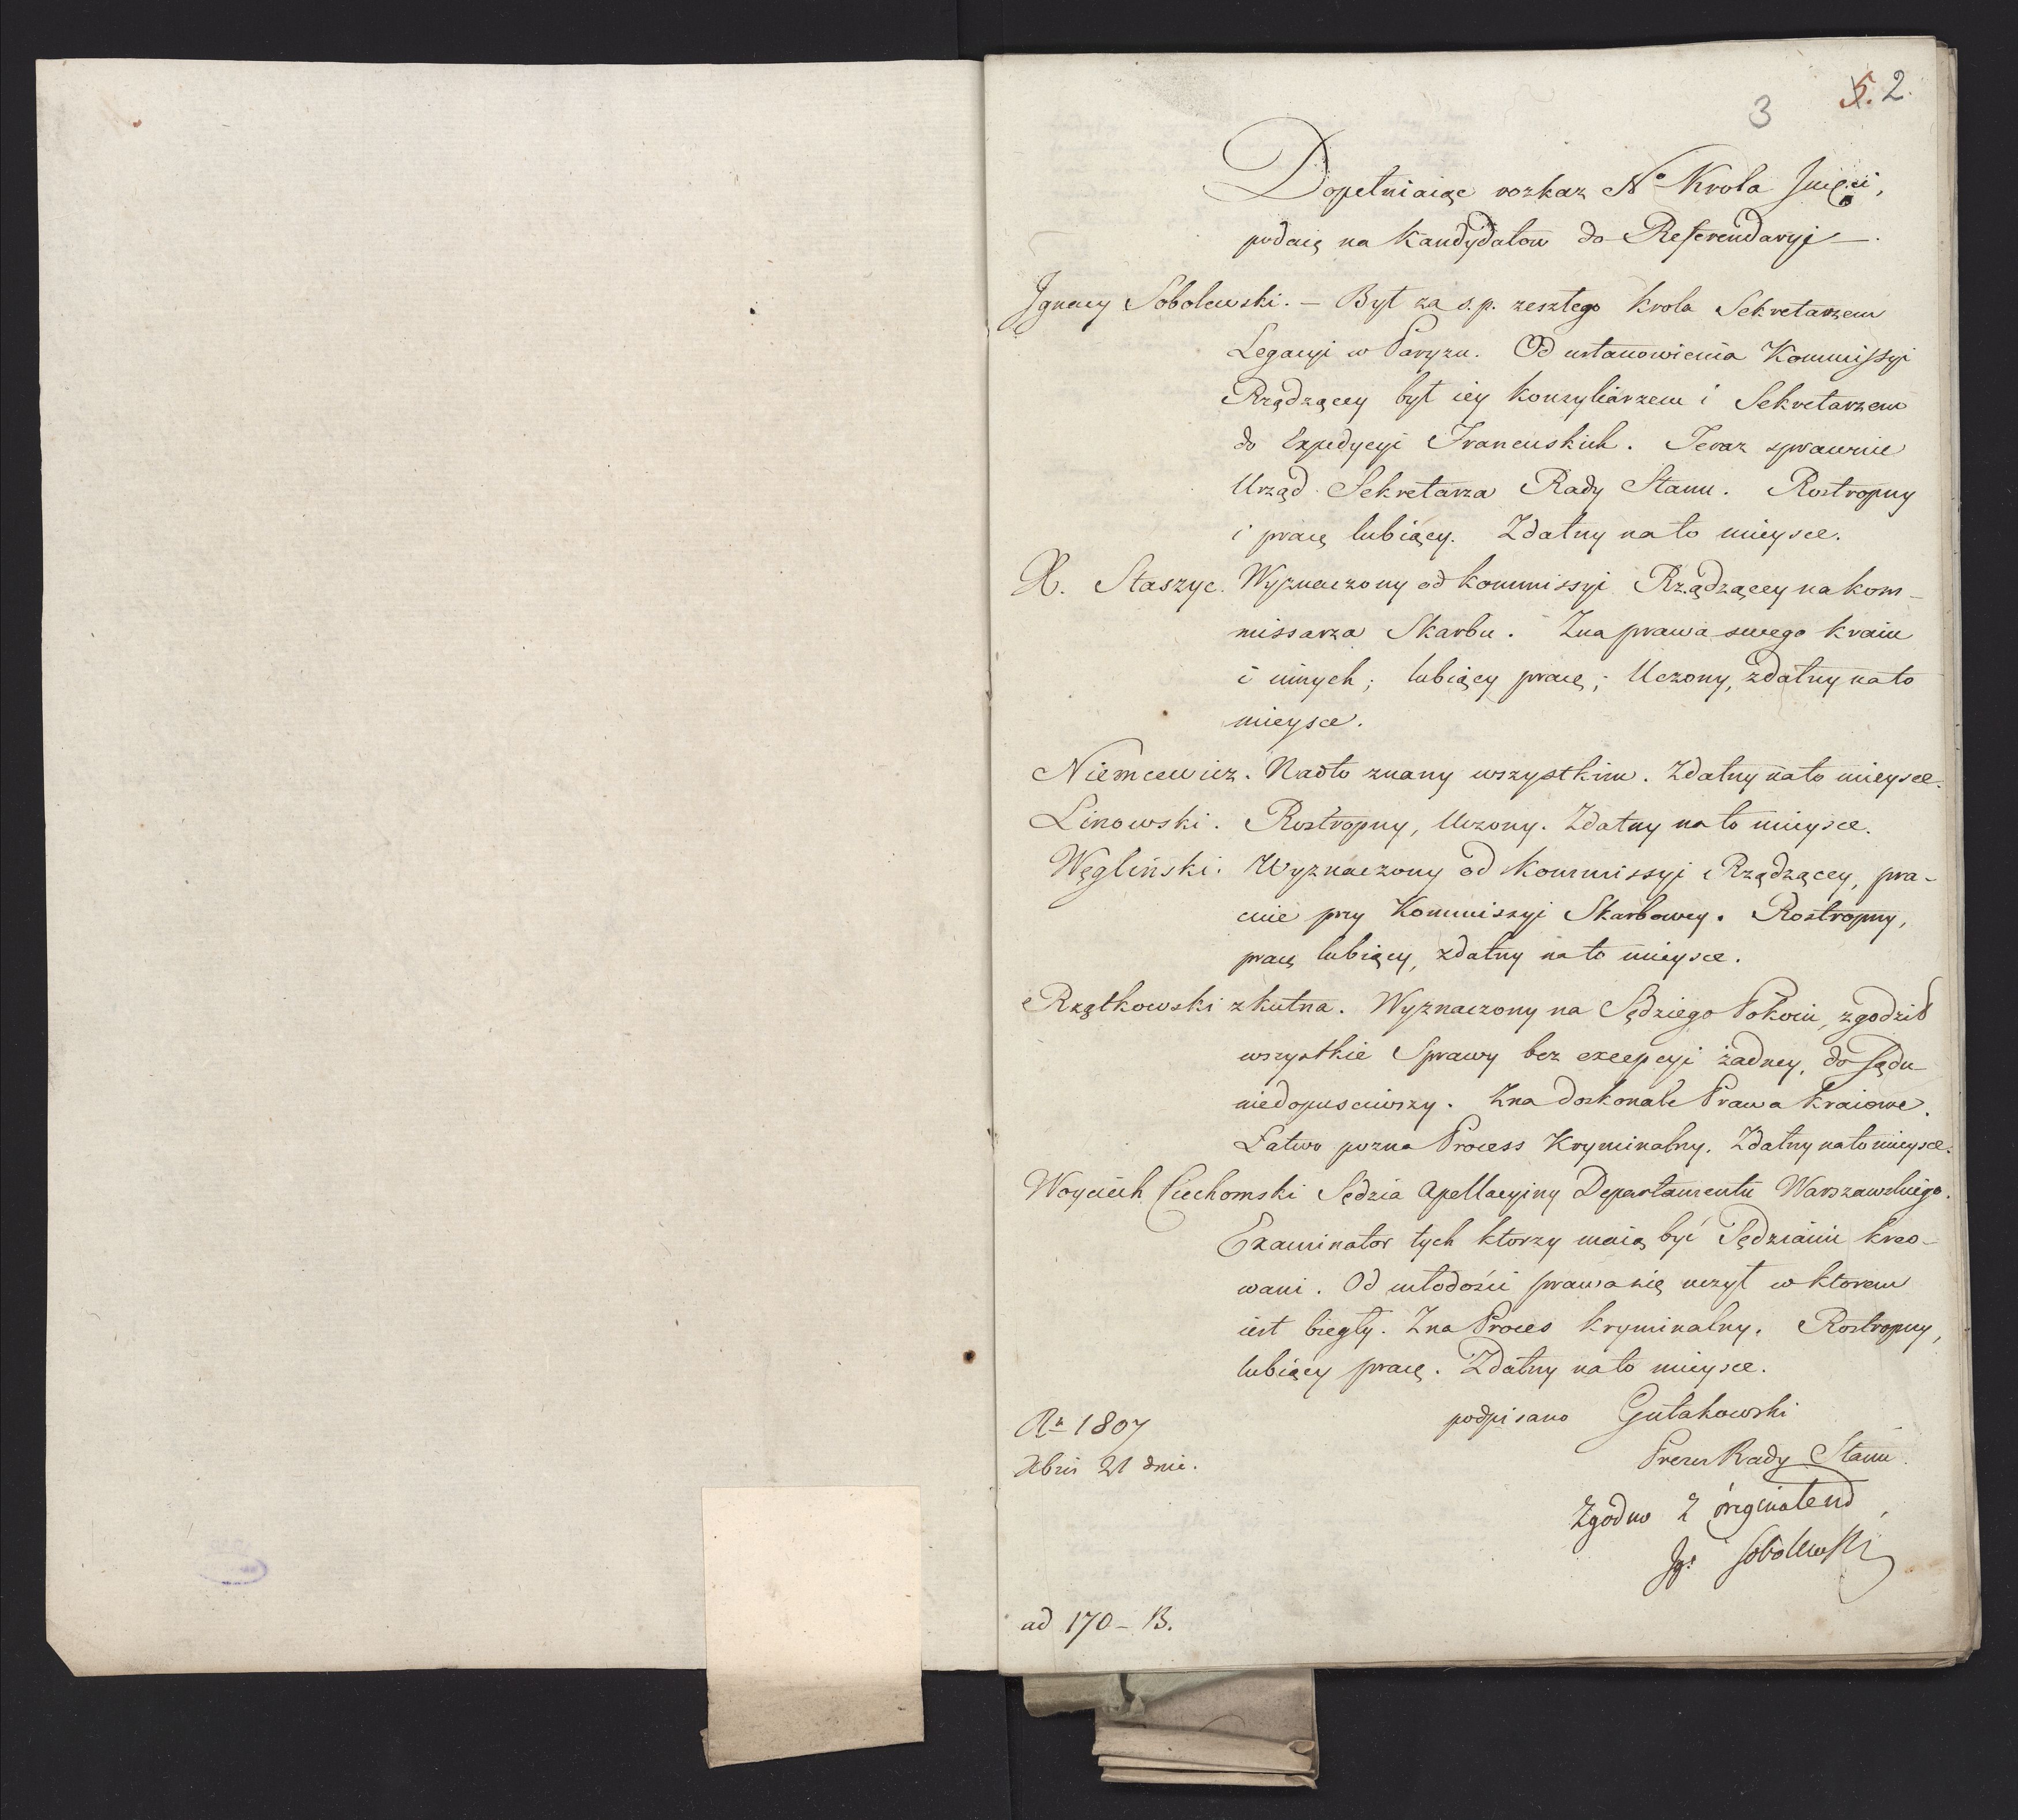 3 5. 2.
Dopełniaiąc rozkaz N° Krola Jmści,
podaię na Kandydatow do Referendaryi —.
Jgnacy Sobolewski. — Był za s. p. zeszłego Krola Sekretarzem
Legacyi w Paryzu. Od ustanowienia Kommissyi
Rządzącey był iey Konsyliarzem i Sekretarzem
do Expedycyi Francuskich. Teraz sprawuie
Urząd Sekretarza Rady Stanu. Rostropny
i pracę lubiący. Zdatny na to mieysce.
X. Staszyc. Wyznaczony od Kommissyi Rządzącey na Kom-
missarza Skarbu. Zna prawa swego kraiu
i innych; lubiący pracę; Uczony, zdatny na to
mieysce.
Niemcewicz. Nadto znany wszystkim. Zdatny na to mieysce.
Linowski. Rostropny, Uczony. Zdatny na to mieysce.
Węgliński. Wyznaczony od Kommissyi Rządzącey, pra-
cuie przy Kommissyi Skarbowey. Rostropny,
pracę lubiący, zdatny na to mieysce.
Rzątkowski z Kutna. Wyznaczony na Sędziego Pokoiu, zgodził
wszystkie Sprawy bez excepcyi żadney, do Sądu
niedopusciwszy. Zna doskonale Prawa kraiowe.
Łatwo pozna Process Kryminalny. Zdatny na to mieysce.
Woyciech Ciechomski Sędzia Apellacyiny Departamentu Warszawskiego.
Examinator tych ktorzy maią być Sędziami kreo-
wani. Od młodości prawa się uczył w ktorem
iest biegły. Zna Proces kryminalny. Rostropny,
lubiący pracę. Zdatny na to mieysce.
podpisano Gutakowski
Ra 1807
Prezes Rady Stanu.
Xbris 21 dnia.
Zgodno z originałem
Jgn Sobolewski
ad 170 – B.